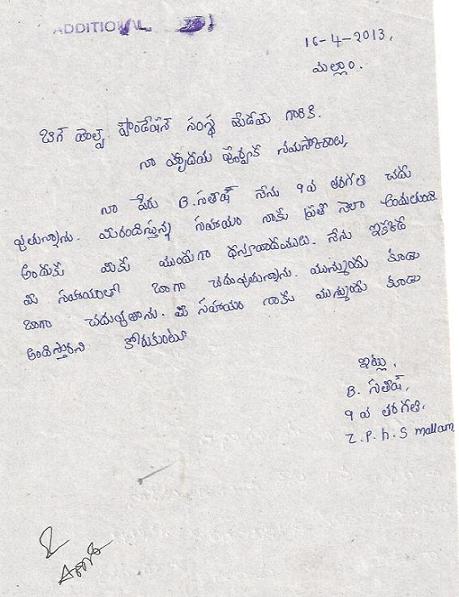 ADDITIONAL
16-4-2013,
మల్లాం.
బిగ్ హెల్ప్ ఫౌండేషన్ సంస్థ మేడమ్ గారికి.
నా హృదయ పూర్వక నమస్కారాలు,
నా పేరు B.సతీష్ నేను 9వ తరగతి చదు
వుతున్నాను. మీరందిస్తున్న సహాయం నాకు ప్రతి నెలా అందుతుంది
అందుకు మీకు ముందుగా ధన్యవాదములు. నేను ఇక్కడ
మీ సహాయంతో బాగా చదువుతున్నాను. మున్ముందు కూడా
బాగా చదువుతాను. మీ సహాయం నాకు మున్ముందు కూడా
అందిస్తారని కోరుకుంటూ
ఇట్లు,
B. సతీష్,
9 వ తరగతి,
Z.P.h.S mallam